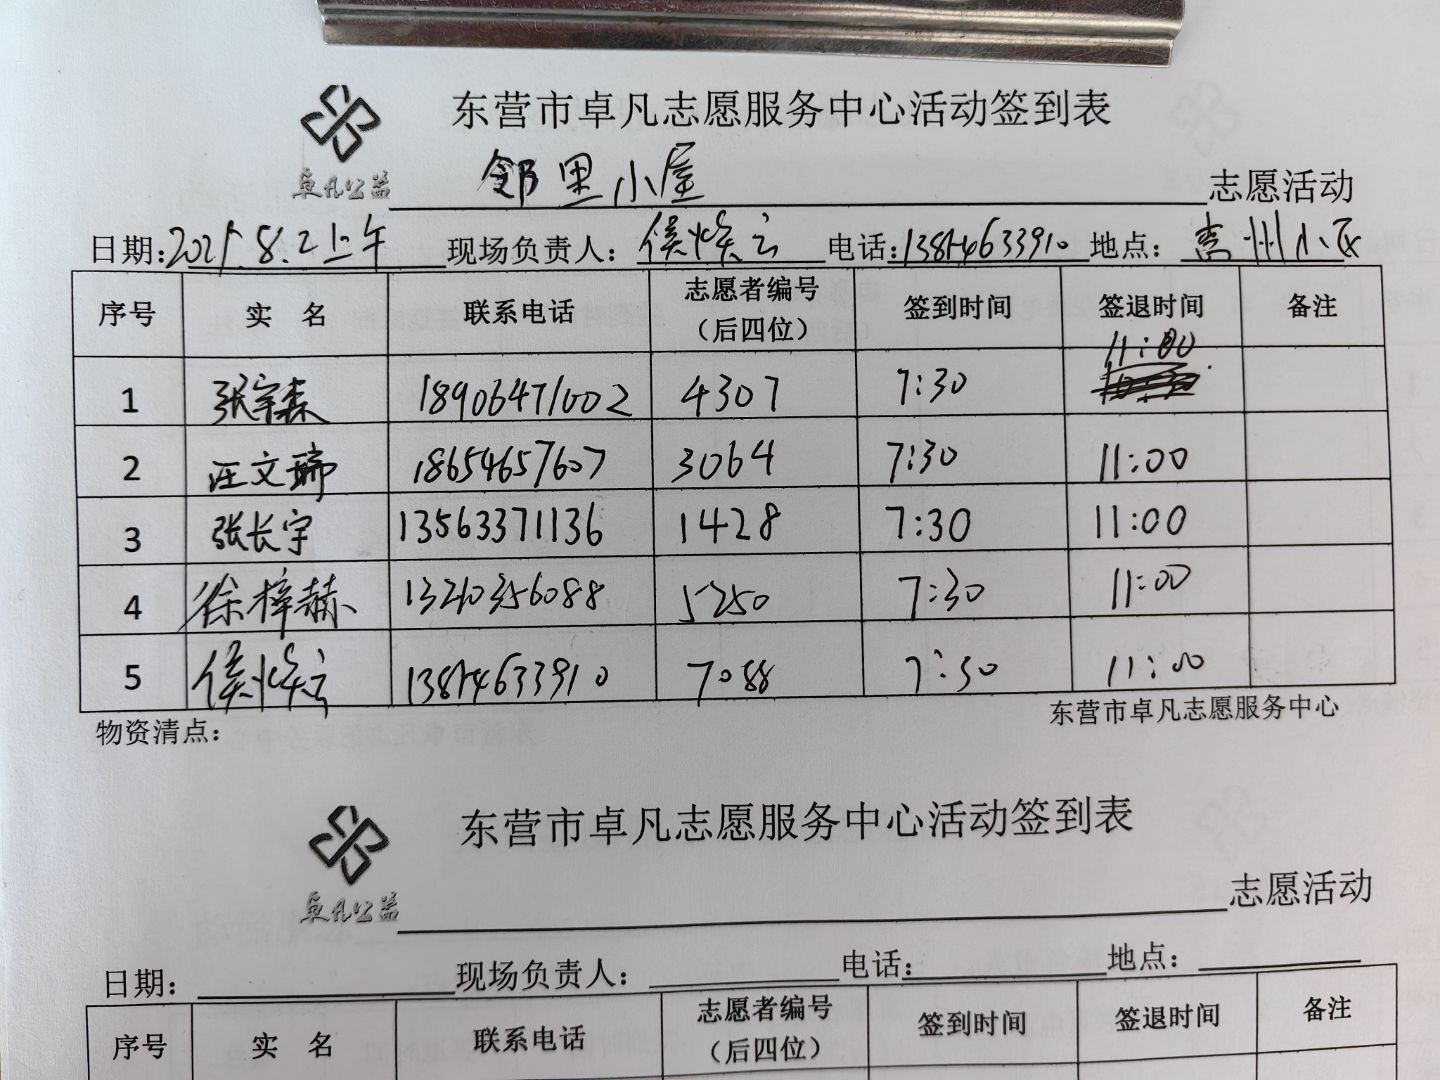 东营市卓凡志愿服务中心活动签到表
卓凡公益 邻里小屋 志愿活动
日期：2021.8.2上午 现场负责人：侯焕云 电话：13814633910 地点：吉州小区
序号 实 名 联系电话 志愿者编号（后四位） 签到时间 签退时间 备注
1 张宇森 18906471002 4307 7:30 11:00
2 汪文瑞 18654657607 3064 7:30 11:00
3 张长宇 13563371136 1428 7:30 11:00
4 徐梓赫 13210356088 5250 7:30 11:00
5 侯焕云 13814633910 7088 7:30 11:00
物资清点： 东营市卓凡志愿服务中心
东营市卓凡志愿服务中心活动签到表
卓凡公益 志愿活动
日期： 现场负责人： 电话： 地点：
序号 实 名 联系电话 志愿者编号（后四位） 签到时间 签退时间 备注